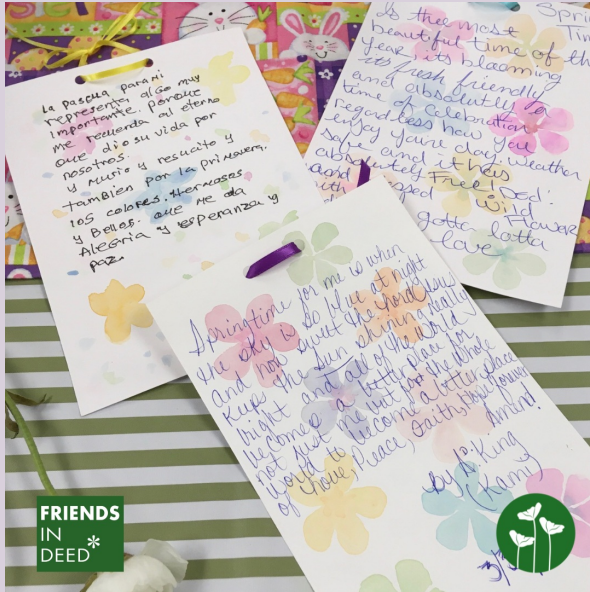 La pascua para mi
representa algo muy
importante. porque
me recuerda al eterno
que dio su vida por
nosotros.
y murio y resucito y
tambien por la primavera,
los colores. Hermosos
y Bellos. que me da
Alegria y esperanza y
paz.
Spring
Time
Is thee most
beautiful time of the
year its blooming
its fresh friendly
and absolutley a
time of celebration
regardless how you
enjoy youre day. weather
safe and
absolutely Free! Ded.
and
Wild
Flower
gotta lotta
love
Springtime for me is when
the sky is so blue at night
and how sweet the Lord Jesus
Keeps the Sun shining really
bright and all of the world
becomes a better place for
not just me but for the whole
world to become a better place
of Love, Peace, Faith, Hope forever
Amend!
By S. King
(Kami)
FRIENDS
IN
DEED*